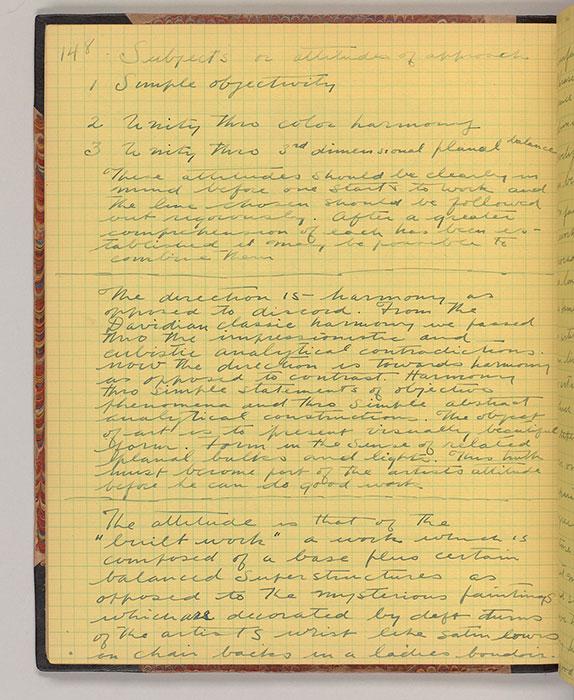 148 Subjects or attitudes of approach
1 Simple objectivity
2 Unity thro color harmony
3 Unity thro 3rd dimensional planal balance
These attitudes should be clearly in
mind before one starts to work and
the line chosen should be followed
out rigorously. After a greater
comprehension of each has been es-
tablished it may be possible to
combine them
The direction is - harmony as
opposed to discord. From the
Davidian classic harmony we passed
thro the impressionistic and
cubistic analytical contradictions.
now the direction is towards harmony
as opposed to contrast. Harmony
thro simple statements of objective
phenomena and thro simple abstract
analytical constructions. The object
of art is to present visually beautiful
form. Form in the sense of related
planal bulks and lights. This truth
must become part of the artists attitude
before he can do good work
The attitude is that of the
"built work" a work which is
composed of a base plus certain
balanced superstructures as
opposed to the mysterious paintings
which are decorated by deft turns
of the artists wrist like satin bows
on chair backs in a ladies boudoir.